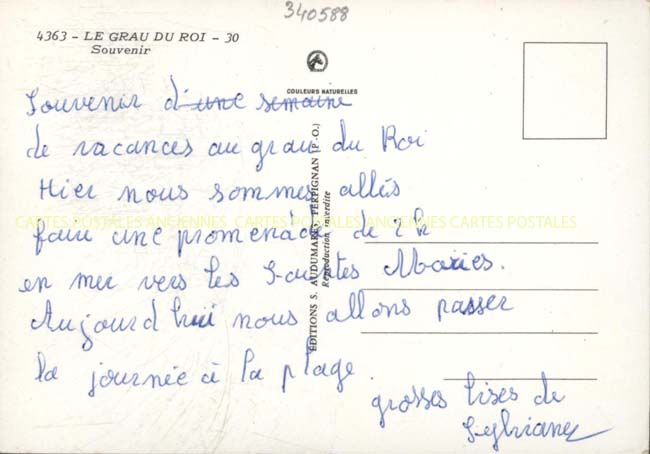 340588
4363 - LE GRAU DU ROI - 30
Souvenir
COULEURS NATURELLES
Souvenir d'une semaine
de vacances au grau du Roi
Hier nous sommes allés
CARTES POSTALES ANCIENNES CARTES POSTALES ANCIENNES CARTES POSTALES
faire une promenade de 2h
en mer vers les Saintes Maries.
Aujourd hui nous allons passer
la journée à la plage.
grosses bises de
Sylviane
EDITIONS S. AUDUMARES, PERPIGNAN (P.-O.)
Reproduction interdite